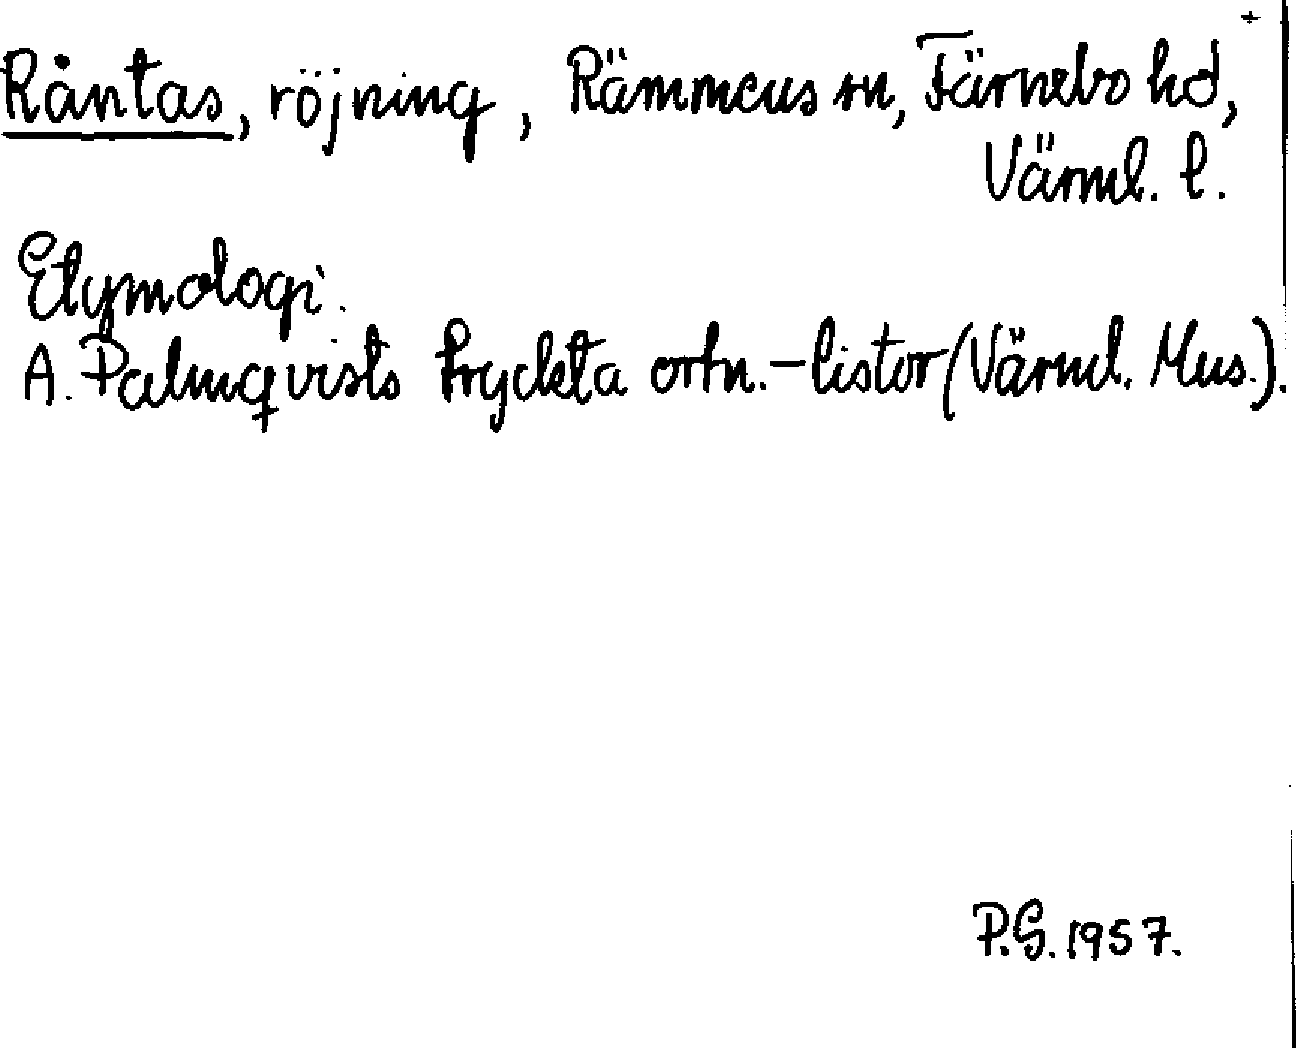 Råntas, röjning, Rämmens sn, Färnebo hd,
Värml. l.
Etymologi.
A. Palmqvists tryckta ortn.-listor (Värml. Mus.).
P.G. 1957.